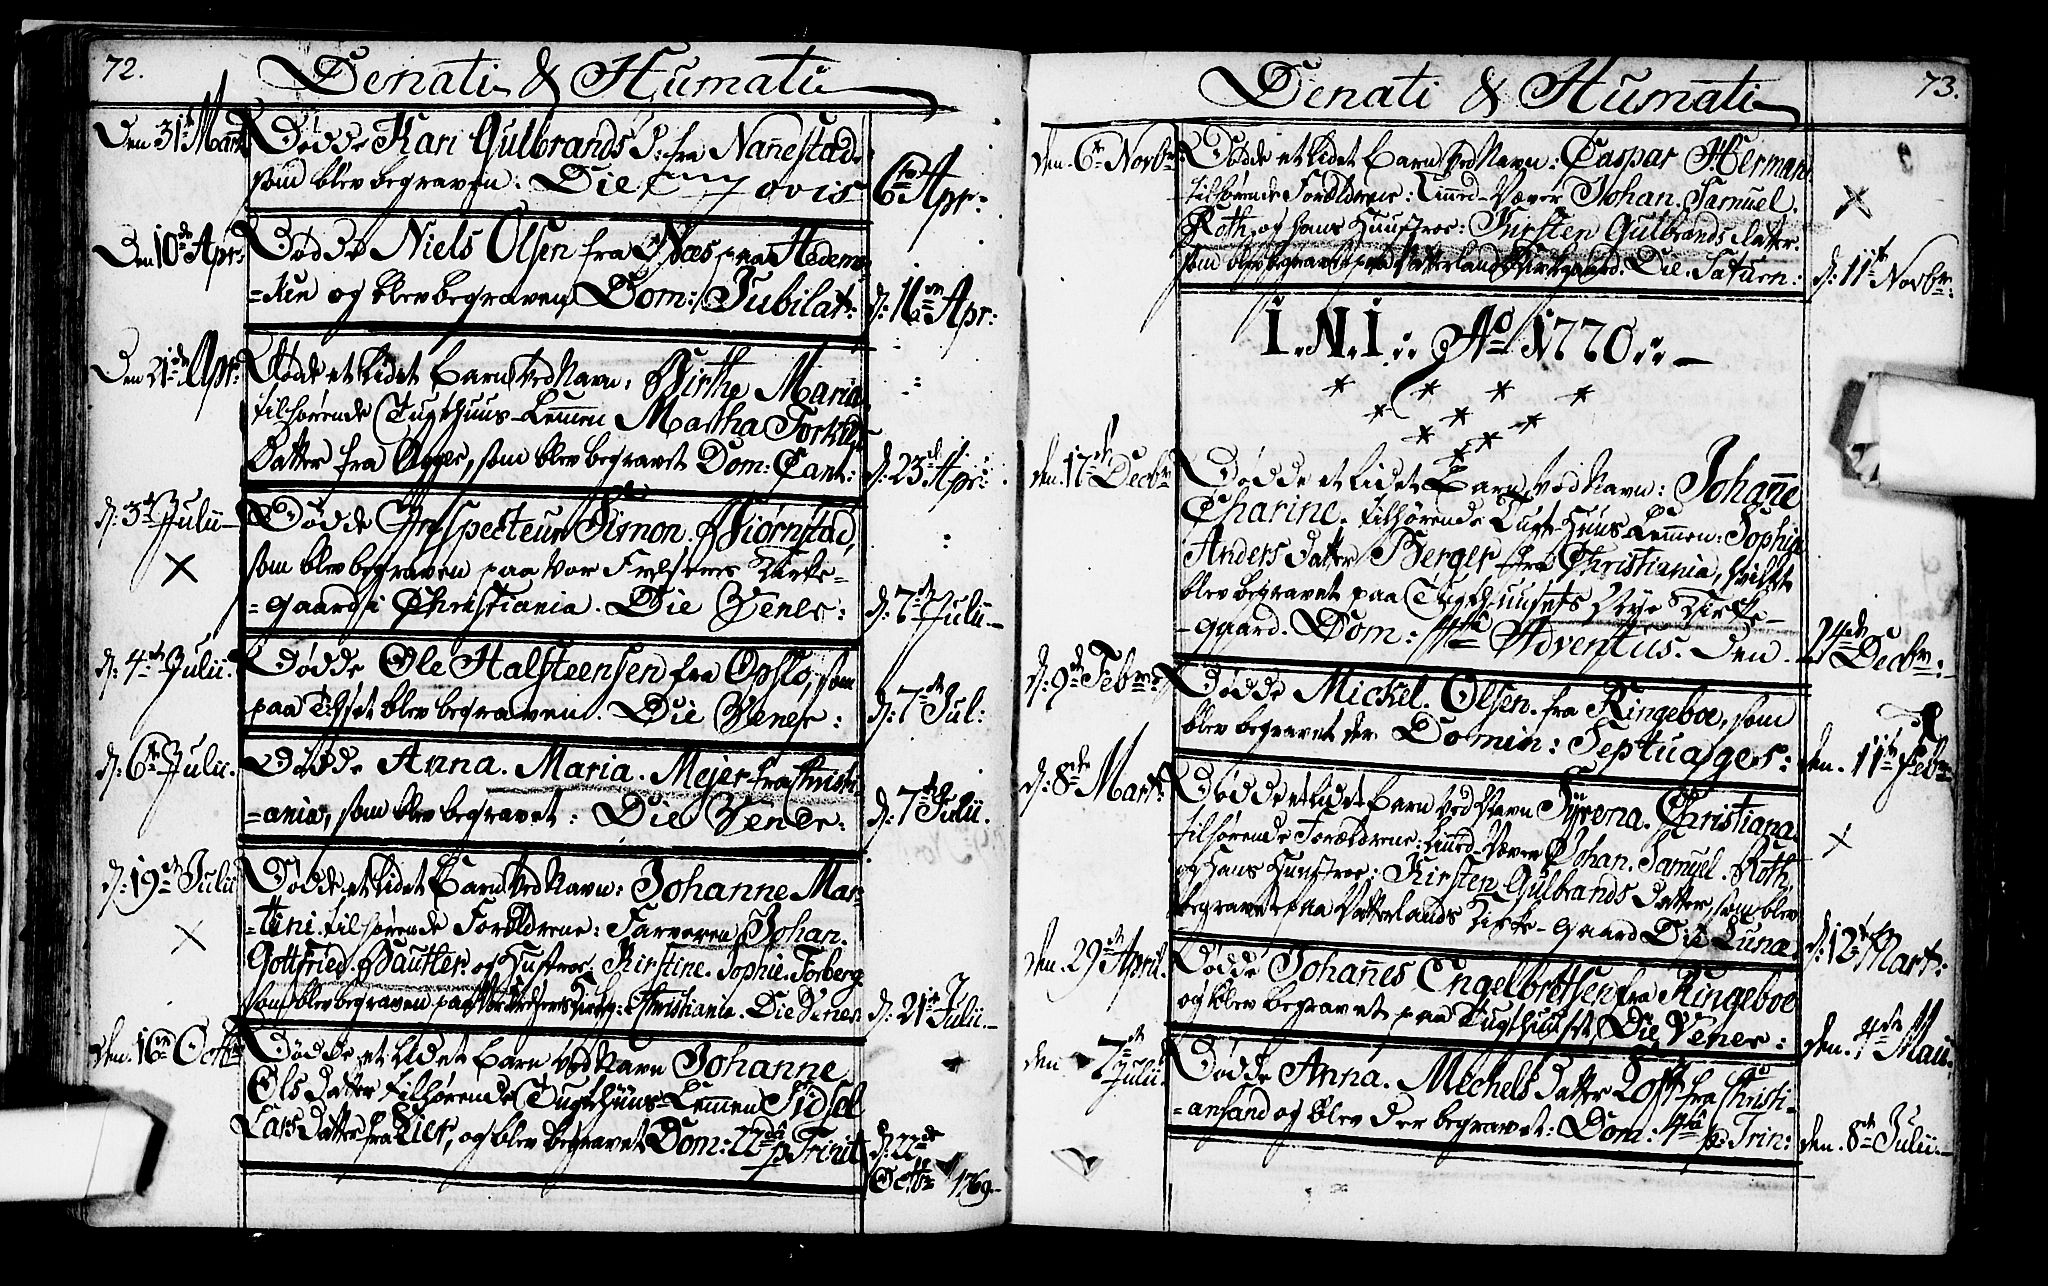 72.
Denati & Humati
Den 31te Mart:
Døde Kari Gulbrands D: fra Nannestad,
som blev begraven: Die Jovis
6te Apr:
Den 10de Apr:
Døde Niels Olsen fra Næs paa Hedem-
-ken og blev begraven Dom: Jubilat:
d: 16en Apr:
Den 21de Apr:
Døde et lidet Barn ved Navn: Birthe Maria
tilhørende Tugthuus-Lemmen Martha Torkils
Datter fra Agger, som blev begravet Dom: Cant:
d: 23de Apr:
d: 3de Julii
Døde Inspecteur Simon Biørnstad,
som blev begraven paa Vor Frelseres Kirke-
-gaard i Christiania. Die Vener:
d: 7de Julii
d: 4de Julii.
Døde Ole Halsteensen fra Opslo, som
paa blev begraven. Die Vener:
d: 7de Jul:
d: 6te Julii.
Døde Anna. Maria. Mejer fra Christi-
-ania, som blev begravet: Die Vener:
d: 7de Julii.
d: 19de Julii
Døde et lidet Barn ved Navn: Johanne Mar-
-tini tilhørende Forældrene: Farveren Johan.
Gottfried Bautler og Hustroe Kirstine. Sophie. Torberg
som blev begraven paa Vor Frelsers Kirkeg: Christiania. Die Vener
d: 21de Julii.
den. 16en Octbr
Døde et lidet Barn ved Navn Johanne
Ols Datter tilhørende Tugthuus-Lemmen Sidsel
Lars Datter fra Lier, og blev begravet Dom: 22da p Trinit
d: 22de
Octbr 1769.
73.
Denati & Humati
den. 6te Novbr:
Døde et lidet Barn ved Navn: Caspar Herman
tilhørende Forældrene: Linned-Væver Johan. Samuel.
Roth, og hans Huustroe: Kirsten Gulbrands datter.
som blev begravet paa Vatterlands Kirkegaard. Die. Saturn:
d: 11te Novbr:
I. N. I:: Ao 1770::
den. 17de Decbr
Døde et lidet Barn ved Navn: Johanne
Charine. tilhørende Tugt-Huus Lemmen: Sophie
Anders datter Berger fra Christiania, hvilket
blev begravet paa Tugthuusets Nye Kirke-
-gaard. Dom: 4ta Adventus. Den
24de Decbr:
d: 9de Febr:
Døde Mickel. Olsen. fra Ringeboe, som
blev begravet der Domin: Septuages:
den. 11te Febr
d: 8de Mart:
Døde et lidet Barn ved Navn Syrena. Christiana.
tilhørende Forældrene: Linned-Væver Johan. Samuel. Roth,
og Hans Huustroe: Kirsten Gulbrands Datter, som blev
begravet paa Vatterlands Kirke-Gaard Die Lunæ.
d: 12te Mart:
den. 29de April.
Døde Johannes Engelbretsen fra Ringeboe
og blev begravet paa Tugthuuset Die Vener:
den. 4de Maii.
den 7de Julii.
Døde Anna. Mechels Datter Loft fra Christi-
-ansand og blev der begravet: Dom: 4ta p: Trin:
den. 8de Julii.